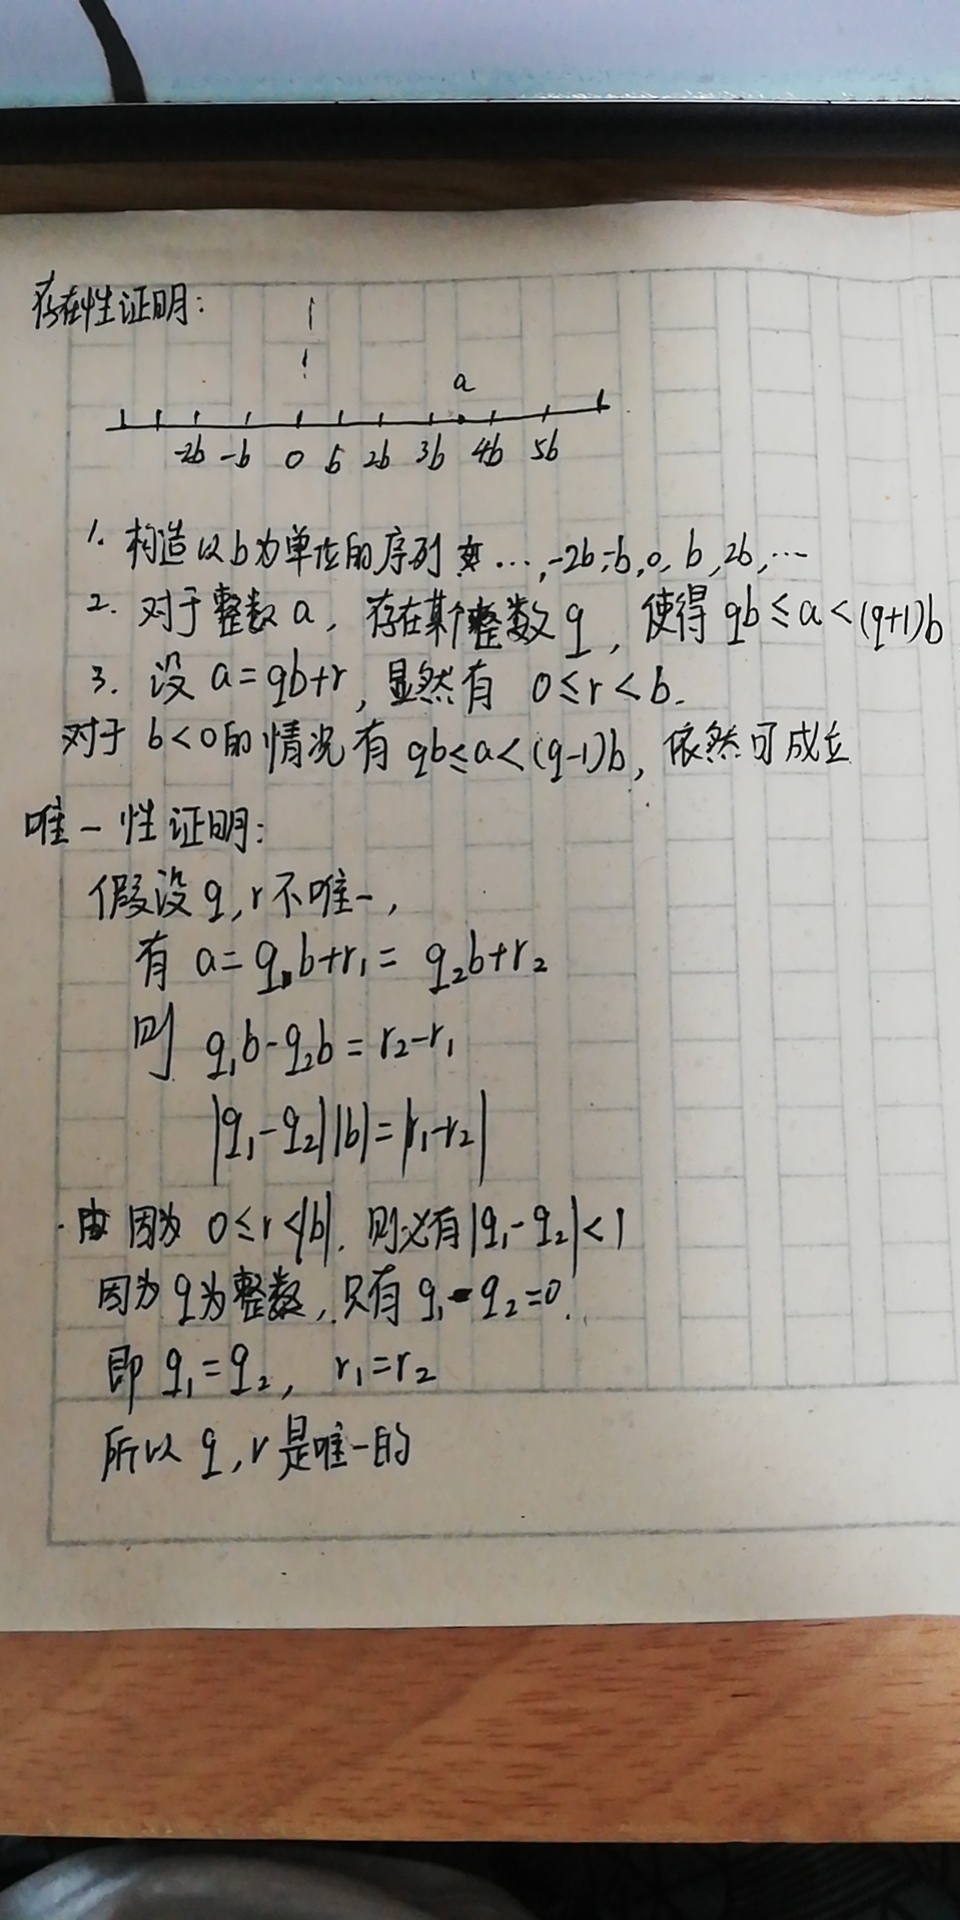 存在性证明:
a
-2b -b 0 b 2b 3b 4b 5b
1. 构造以b为单位的序列 …,-2b,-b,0,b,2b,…
2. 对于整数a, 存在某个整数q, 使得 qb≤a<(q+1)b
3. 设 a=qb+r, 显然有 0≤r<b.
对于 b<0的情况有 qb≤a<(q-1)b, 依然可成立
唯一性证明:
假设q,r不唯一,
有 a=q₁b+r₁= q₂b+r₂
则 q₁b-q₂b=r₂-r₁
|q₁-q₂||b|=|r₁-r₂|
因为 0≤r<|b|. 则必有|q₁-q₂|<1
因为q为整数, 只有 q₁-q₂=0.
即 q₁=q₂, r₁=r₂
所以 q,r是唯一的